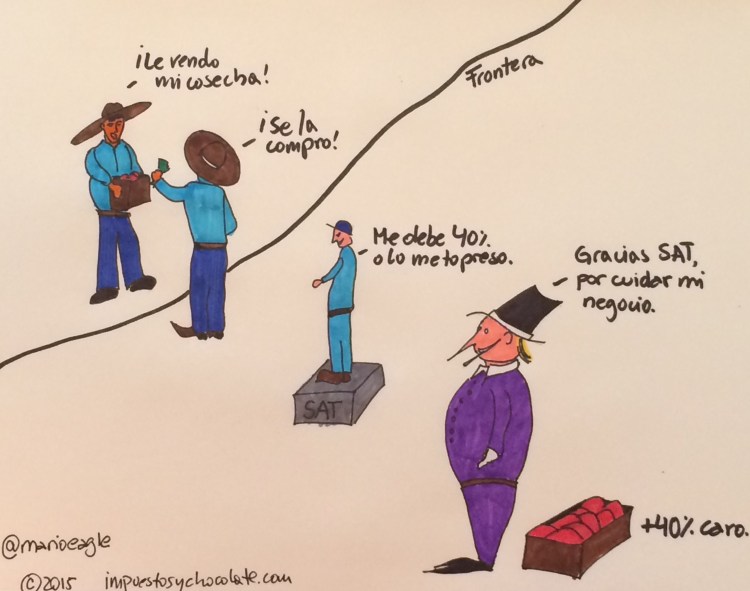 ¡Le vendo
mi cosecha!
¡Se la
compro!
Frontera
Me debe 40%
o lo meto preso.
SAT
Gracias SAT,
por cuidar mi
negocio.
+40% caro.
@marioeagle
©2015 impuestosychocolate.com